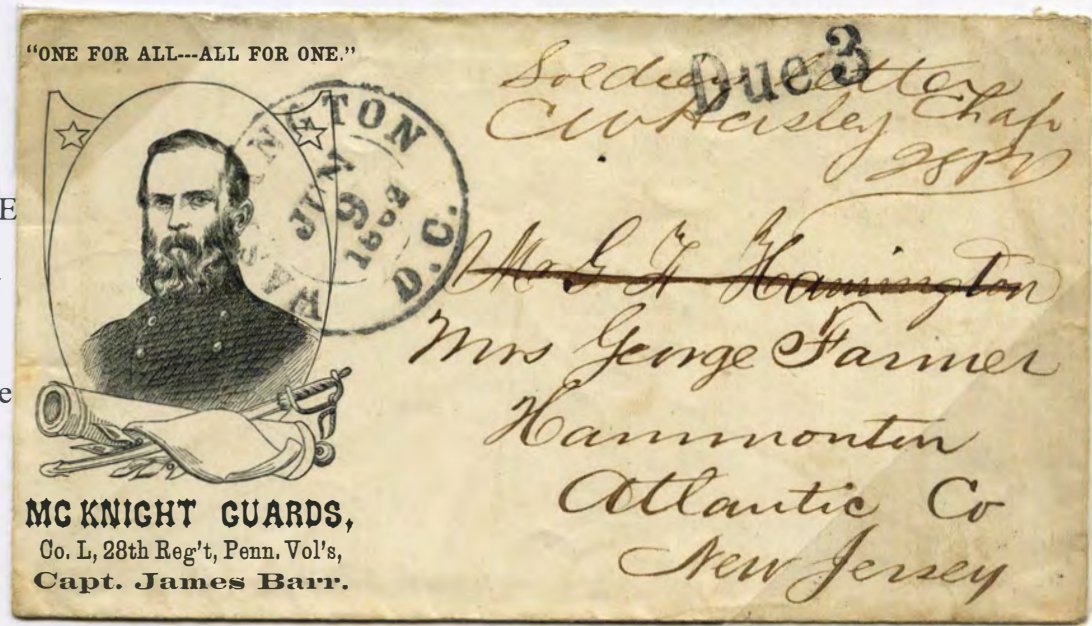 "ONE FOR ALL---ALL FOR ONE."
WASHINGTON
D.C.
JUN
9
1862
Due 3
Soldiers Letter
C W Heisley Chap
28 PV
Mr G F Hamington
Mrs George Farmer
Hammonton
Atlantic Co
New Jersey
MC KNIGHT GUARDS,
Co. L, 28th Reg't, Penn. Vol's,
Capt. James Barr.
E
e